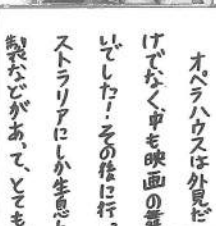 オペラハウスは外見だ
けでなく、中も映画の舞
いでした！その後に行っ
ストラリアにしか生息し
製などがあって、とても